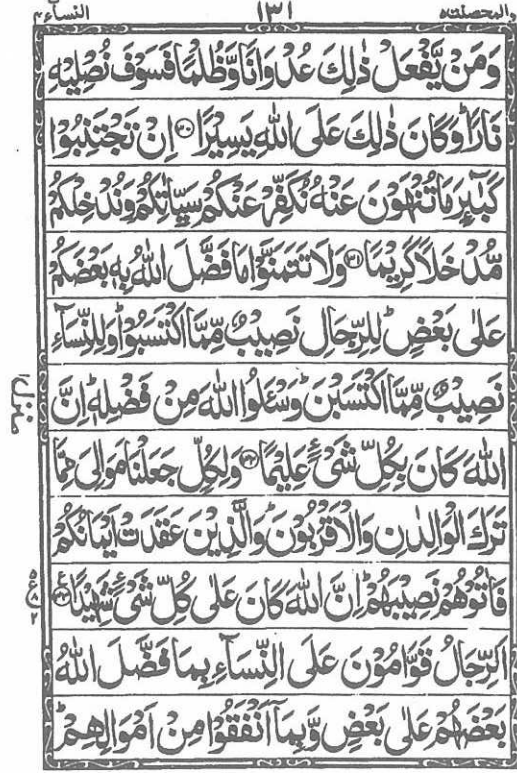 والمحصنٰت ۵ ۱۳۱ النسآء ۴
وَمَنْ يَّفْعَلْ ذٰلِكَ عُدْوَانًا وَّظُلْمًا فَسَوْفَ نُصْلِيْهِ
نَارًا ؕ وَكَانَ ذٰلِكَ عَلَى اللّٰهِ يَسِيْرًا ﴿۳۰﴾ اِنْ تَجْتَنِبُوْا
كَبَآئِرَ مَا تُنْهَوْنَ عَنْهُ نُكَفِّرْ عَنْكُمْ سَيِّاٰتِكُمْ وَنُدْخِلْكُمْ
مُّدْخَلًا كَرِيْمًا ﴿۳۱﴾ وَلَا تَتَمَنَّوْا مَا فَضَّلَ اللّٰهُ بِهٖ بَعْضَكُمْ
عَلٰى بَعْضٍ ؕ لِلرِّجَالِ نَصِيْبٌ مِّمَّا اكْتَسَبُوْا ؕ وَلِلنِّسَآءِ
نَصِيْبٌ مِّمَّا اكْتَسَبْنَ ؕ وَسْـَٔلُوا اللّٰهَ مِنْ فَضْلِهٖ ؕ اِنَّ
اللّٰهَ كَانَ بِكُلِّ شَیْءٍ عَلِيْمًا ﴿۳۲﴾ وَلِكُلٍّ جَعَلْنَا مَوَالِیَ مِمَّا
تَرَكَ الْوَالِدٰنِ وَالْاَقْرَبُوْنَ ؕ وَالَّذِيْنَ عَقَدَتْ اَيْمَانُكُمْ
فَاٰتُوْهُمْ نَصِيْبَهُمْ ؕ اِنَّ اللّٰهَ كَانَ عَلٰى كُلِّ شَیْءٍ شَهِيْدًا ﴿۳۳﴾
اَلرِّجَالُ قَوّٰمُوْنَ عَلَى النِّسَآءِ بِمَا فَضَّلَ اللّٰهُ
بَعْضَهُمْ عَلٰى بَعْضٍ وَّبِمَآ اَنْفَقُوْا مِنْ اَمْوَالِهِمْ ؕ
منزل ۱